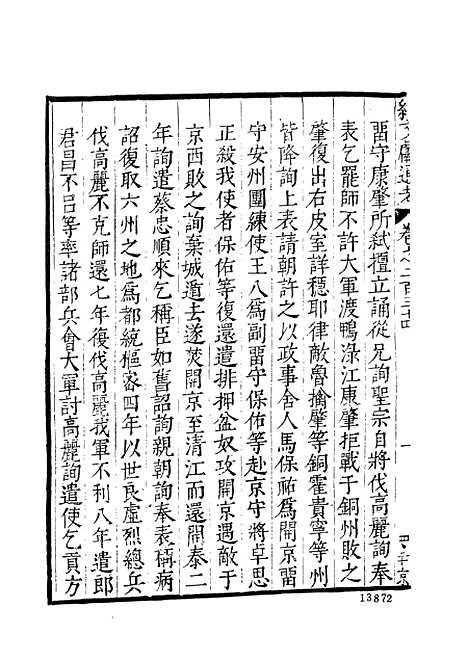 畱守康肇所弑擅立誦從兄詢聖宗自將伐高麗詢奉
表乞罷師不許大軍渡鴨淥江康肇拒戰于銅州敗之
肇復出右皮室詳穩耶律敵魯擒肇等銅霍貴寧等州
皆降詢上表請朝許之以政事舍人馬保祐爲開京畱
守安州團練使王八爲副畱守保佑等赴京守將卓思
正殺我使者保佑等復還遣排押盆奴攻開京遇敵于
京西敗之詢棄城遁去遂焚開京至清江而還開泰二
年詢遣蔡忠順來乞稱臣如舊詔詢親朝詢奉表稱病
詔復取六州之地爲都統樞密四年以世良虛烈總兵
伐高麗不克師還七年復伐高麗我軍不利八年遣郎
君曷不呂等率諸部兵會大軍討高麗詢遣使乞貢方
續文獻通考
卷之二百三十四
一
13872